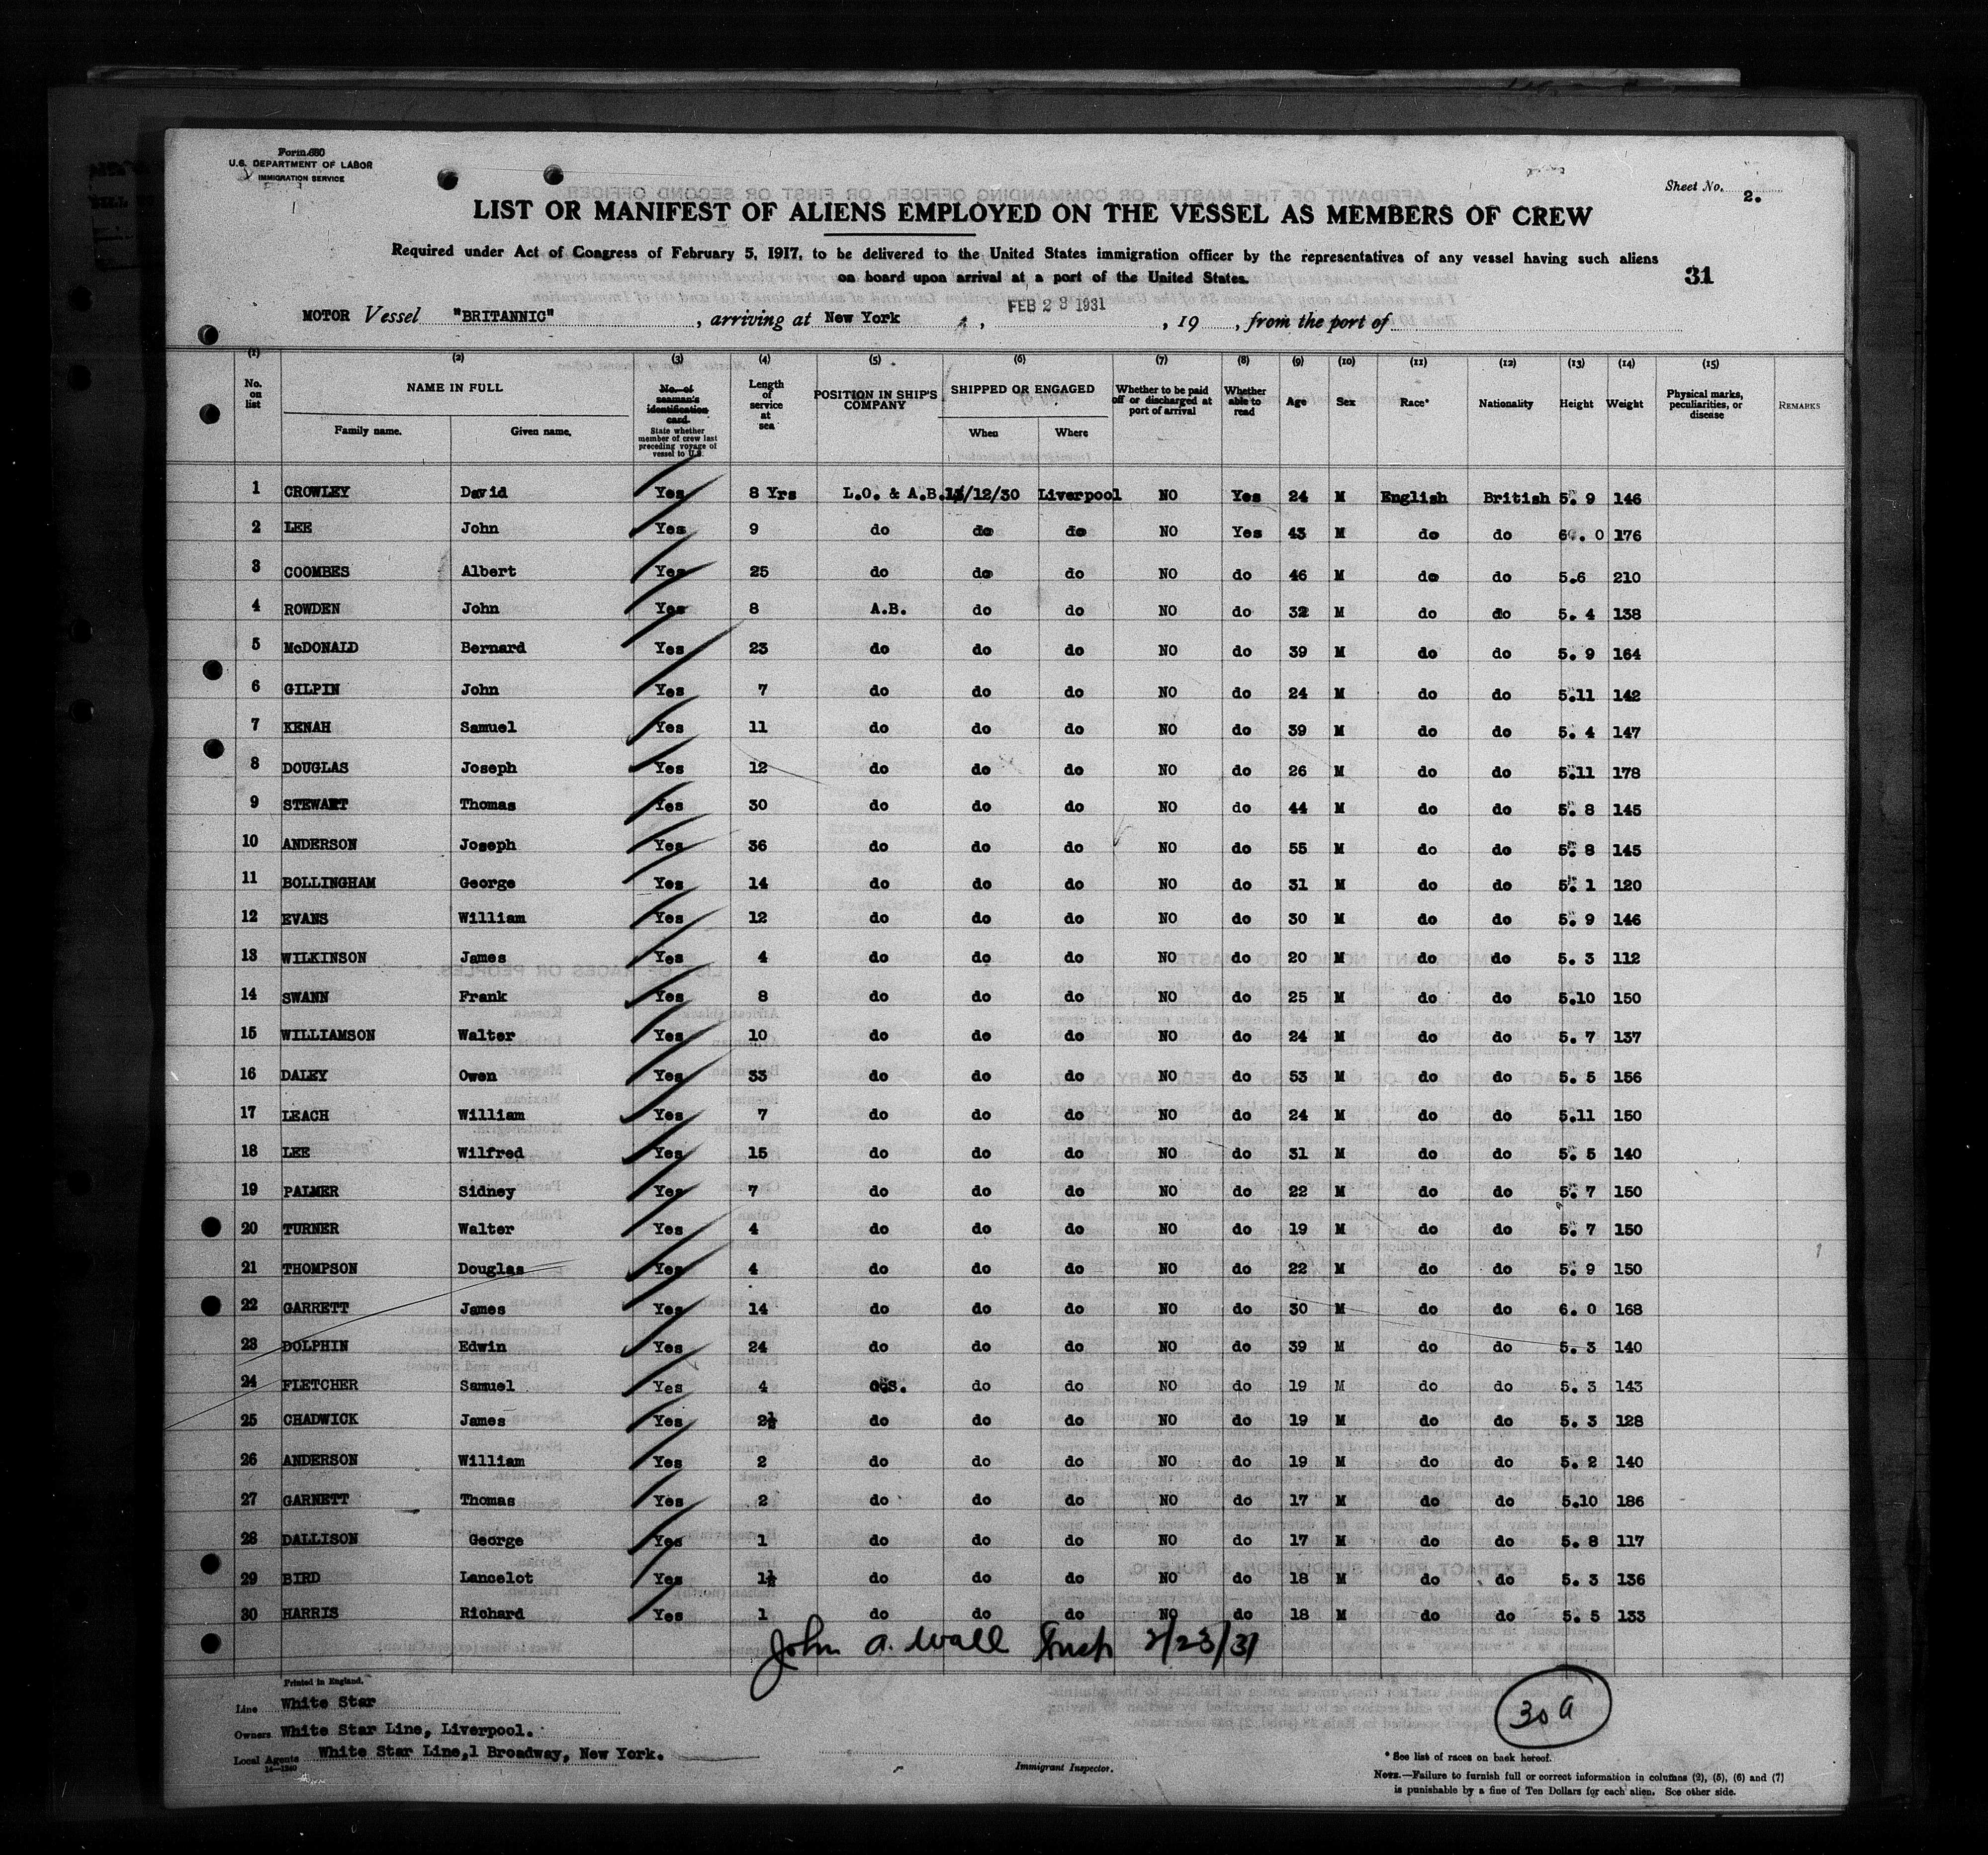 Form 680
U.S. DEPARTMENT OF LABOR
IMMIGRATION SERVICE
Sheet No. 2.
LIST OR MANIFEST OF ALIENS EMPLOYED ON THE VESSEL AS MEMBERS OF CREW
Required under Act of Congress of February 5, 1917, to be delivered to the United States immigration officer by the representatives of any vessel having such aliens
on board upon arrival at a port of the United States.
31
MOTOR Vessel "BRITANNIC", arriving at New York, FEB 23 1931, 19, from the port of
(1) (2) (3) (4) (5) (6) (7) (8) (9) (10) (11) (12) (13) (14) (15)
No. on list NAME IN FULL Family name. Given name. No. of seaman's identification card. State whether member of crew last preceding voyage of vessel to U.S. Length of service at sea POSITION IN SHIP'S COMPANY SHIPPED OR ENGAGED When Where Whether to be paid off or discharged at port of arrival Whether able to read Age Sex Race* Nationality Height Weight Physical marks, peculiarities, or disease REMARKS
1 CROWLEY David Yes 8 Yrs L.O. & A.B. /12/30 Liverpool NO Yes 24 M English British 5. 9 146
2 LEE John Yes 9 do do do NO Yes 43 M do do 6. 0 176
3 COOMBES Albert Yes 25 do do do NO do 46 M do do 5.6 210
4 ROWDEN John Yes 8 A.B. do do NO do 32 M do do 5. 4 138
5 McDONALD Bernard Yes 23 do do do NO do 39 M do do 5. 9 164
6 GILPIN John Yes 7 do do do NO do 24 M do do 5.11 142
7 KENAH Samuel Yes 11 do do do NO do 39 M do do 5. 4 147
8 DOUGLAS Joseph Yes 12 do do do NO do 26 M do do 5.11 178
9 STEWART Thomas Yes 30 do do do NO do 44 M do do 5. 8 145
10 ANDERSON Joseph Yes 36 do do do NO do 55 M do do 5. 8 145
11 BOLLINGHAM George Yes 14 do do do NO do 31 M do do 5. 1 120
12 EVANS William Yes 12 do do do NO do 30 M do do 5. 9 146
13 WILKINSON James Yes 4 do do do NO do 20 M do do 5. 3 112
14 SWANN Frank Yes 8 do do do NO do 25 M do do 5.10 150
15 WILLIAMSON Walter Yes 10 do do do NO do 24 M do do 5. 7 137
16 DALEY Owen Yes 33 do do do NO do 53 M do do 5. 5 156
17 LEACH William Yes 7 do do do NO do 24 M do do 5.11 150
18 LEE Wilfred Yes 15 do do do NO do 31 M do do 5. 5 140
19 PALMER Sidney Yes 7 do do do NO do 22 M do do 5. 7 150
20 TURNER Walter Yes 4 do do do NO do 19 M do do 5. 7 150
21 THOMPSON Douglas Yes 4 do do do NO do 22 M do do 5. 9 150
22 GARRETT James Yes 14 do do do NO do 30 M do do 6. 0 168
23 DOLPHIN Edwin Yes 24 do do do NO do 39 M do do 5. 3 140
24 FLETCHER Samuel Yes 4 O.S. do do NO do 19 M do do 5. 3 143
25 CHADWICK James Yes 2½ do do do NO do 19 M do do 5. 3 128
26 ANDERSON William Yes 2 do do do NO do 19 M do do 5. 2 140
27 GARNETT Thomas Yes 2 do do do NO do 17 M do do 5.10 186
28 DALLISON George Yes 1 do do do NO do 17 M do do 5. 8 117
29 BIRD Lancelot Yes 1½ do do do NO do 18 M do do 5. 3 136
30 HARRIS Richard Yes 1 do do do NO do 18 M do do 5. 5 133
John A. Wall 2/23/31
Printed in England.
Line White Star
Owners White Star Line, Liverpool.
Local Agents White Star Line,1 Broadway, New York.
14—1240
Immigrant Inspector.
30 a
* See list of races on back hereof.
NOTE.—Failure to furnish full or correct information in columns (2), (5), (6) and (7)
is punishable by a fine of Ten Dollars for each alien. See other side.